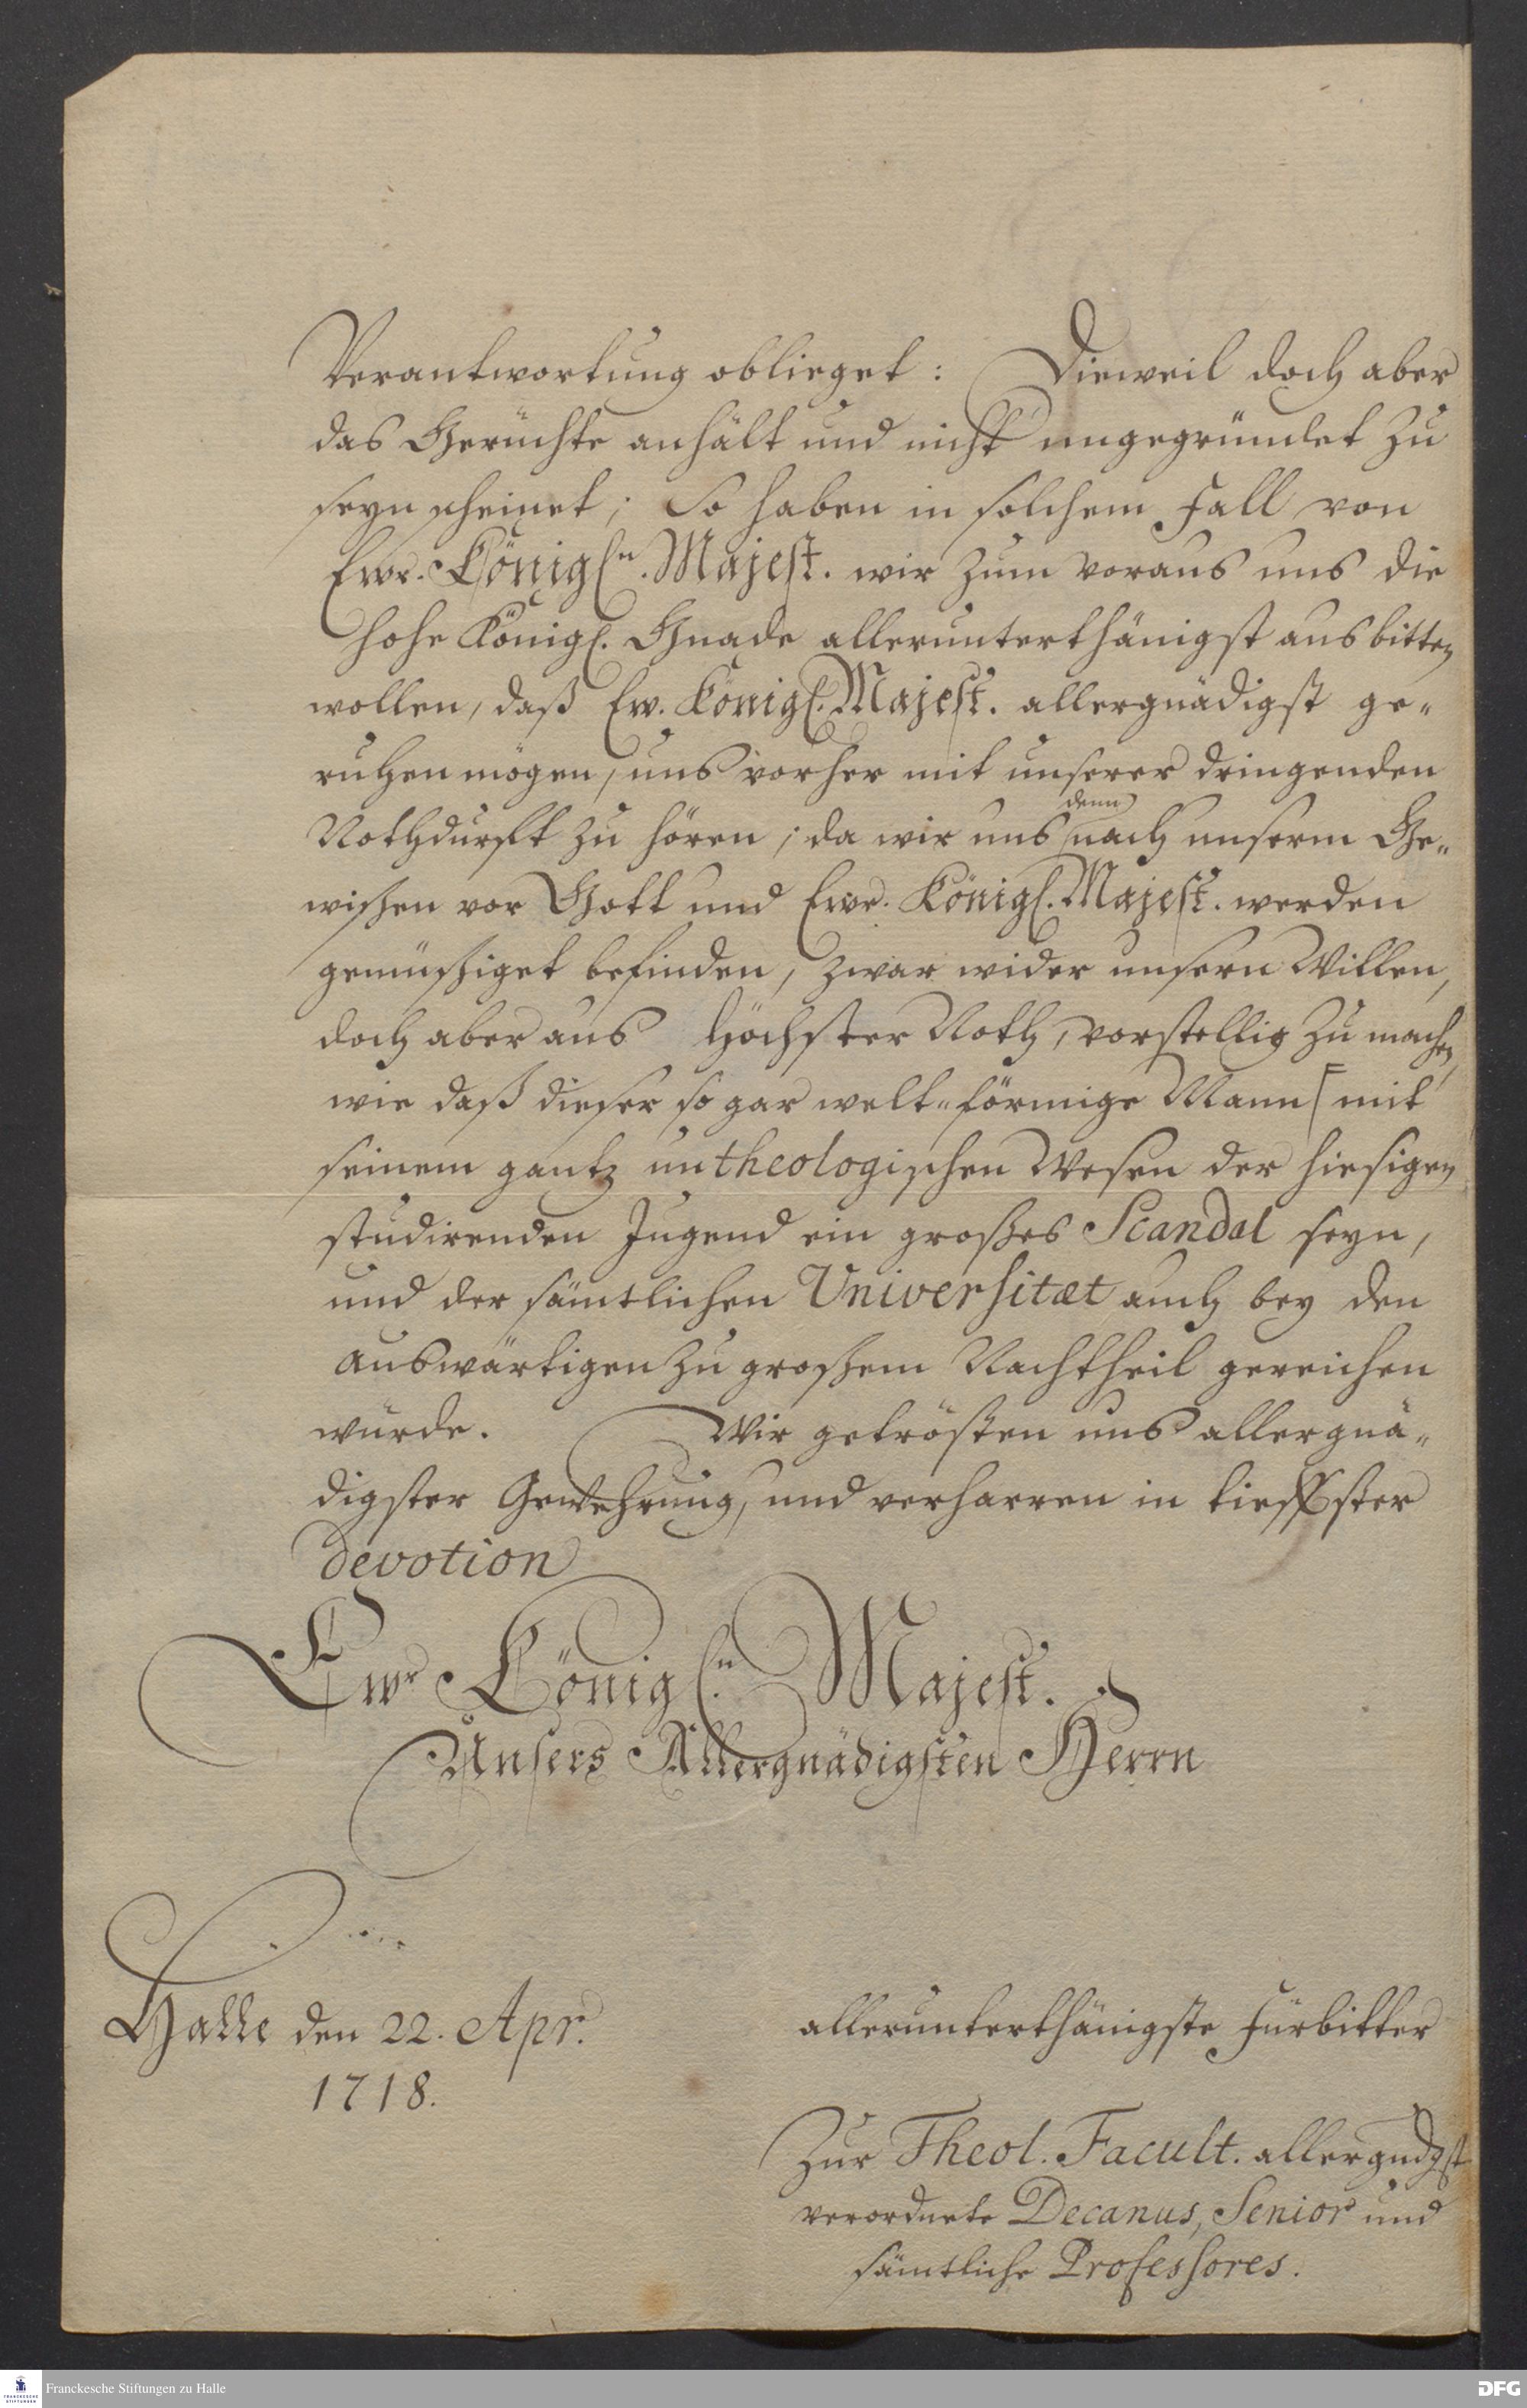 Verantwortung oblieget: Dieweil doch aber
das Gerüchte anhält und nicht ungegründet zu
seyn scheinet; So haben in solchem Fall von
Ewr. Königln. Majest. wir zum voraus uns die
hohe Königl. Gnade allerunterthänigst ausbitten
wollen, daß Ew. Königl. Majest. allergnädigst ge-
ruhen mögen, uns vorher mit unserer dringenden
denn
Nothdurfft zu hören; da wir uns nach unserm Ge-
wißen vor Gott und Ewr. Königl. Majest. werden
gemüßiget befinden, zwar wider unsern Willen,
doch aber aus höchster Noth, vorstellig zu machen,
wie daß dieser so gar welt-förmige Mann mit
seinem gantz untheologischen Wesen der hiesigen
studirenden Jugend ein großes Scandal seyn,
und der sämtlichen Universitæt auch bey den
auswärtigen zu großem Nachtheil gereichen
würde. Wir getrösten uns allergnä-
digster Gewehrung, und verharren in tieffster
devotion
Ewr Königln. Majest.
Unsers Allergnädigsten Herrn
Halle den 22. Apr.
1718.
allerunterthänigste Fürbitter
Zur Theol. Facult. allergndgst
verordnete Decanus, Senior und
sämtliche Professores.
Franckesche Stiftungen zu Halle
DFG